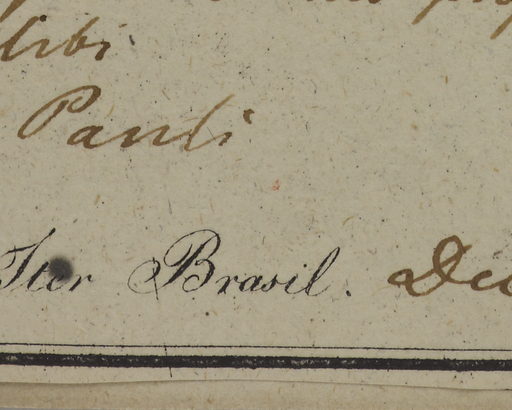 libi
Pauli
Iter Brasil. Dec